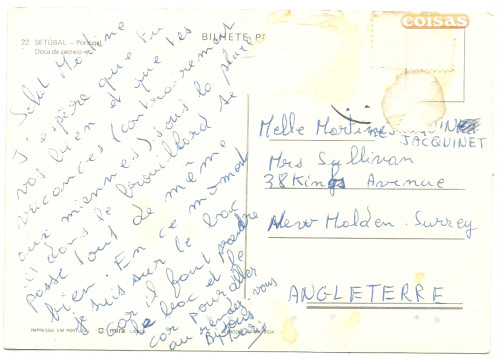 coisas
22. SETÚBAL - Portugal
Doca de recreio
BILHETE P
Salut Martine
J'espère que tu
vas bien et que tes
vacances (contrairement
aux miennes) sous la pluie
et dans le brouillard se
passe tout de même
bien. En ce moment
je suis sur le bac
car il faut prendre
le bac et le
car pour aller
au rendez vous
IMPRESSO EM PORTUGAL
Melle Martine
JACQUINET
Mrs Sullivan
38 Kings Avenue
New Malden. Surrey
ANGLETERRE